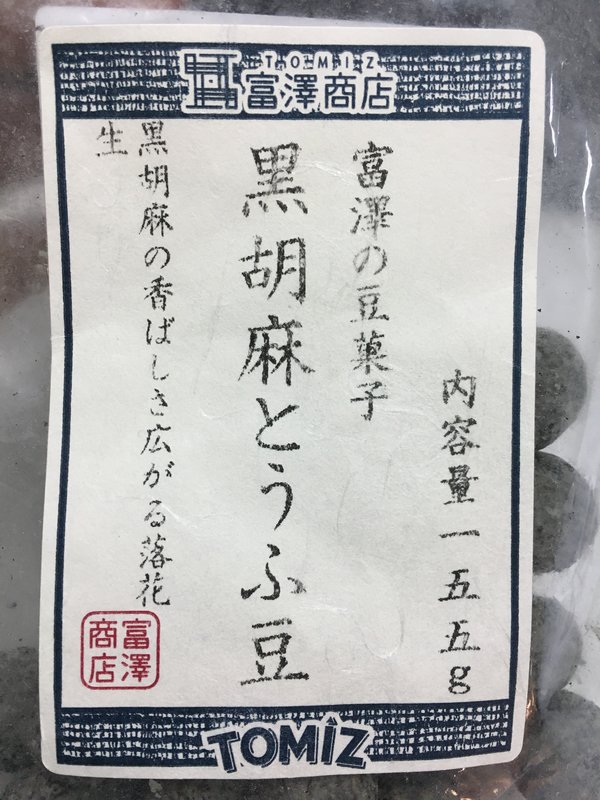 TOMIZ
富澤商店
内容量一五五g
富澤の豆菓子
黒胡麻とうふ豆
黒胡麻の香ばしさ広がる落花
生
富澤
商店
TOMIZ